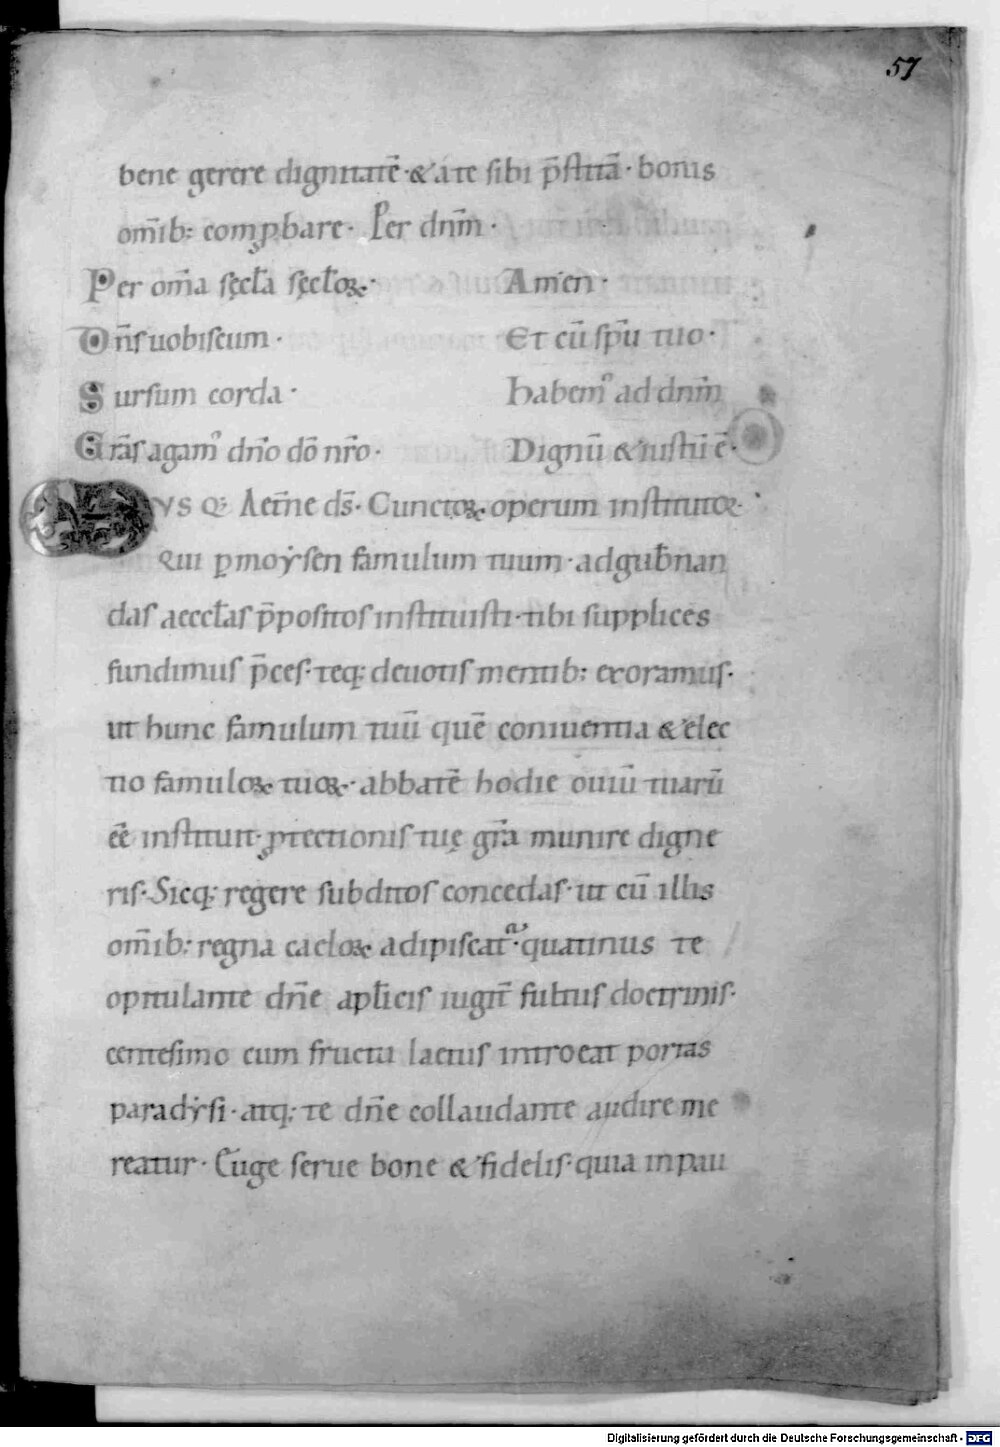 57
bene gerere dignitatē · & a te sibi p̄stitā · bonis
om̄ib: comꝓbare · Per dnm̄ ·
Per om̄a sęcl̄a sęcl̄oꝝ · Amen ·
Dn̄s uobiscum · Et cū sp̄u tuo ·
Sursum corda · habemꝰ ad dnm̄
Grās agamꝰ dn̄o dō nr̄o · Dignū & iustū ē ·
VS Q: Aet̄ne ds̄ · Cunctoꝝ operum institutoꝝ ·
Qui ꝑ moẏsen famulum tuum · ad gub̄nan
das aeccl̄as p̄positos instituisti · tibi supplices
fundimus p̄ces · teq; deuotis mentib: exoramus ·
ut hunc famulum tuū quē conniuentia & elec
tio famuloꝝ tuoꝝ · abbatē hodie ouiū tuarū
eē instituit · ꝓtectionis tuę gr̄a munire digne
ris · Sicq; regere subditos concedas · ut cū illis
om̄ib: regna caeloꝝ adipiscat᷑ · quatinus te
opitulante dn̄e apl̄icis iugit̄ fultus doctrinis ·
centesimo cum fructu laetus introeat portas
paradẏsi · atq; te dn̄e collaudante audire me
reatur · Euge serue bone & fidelis · quia in pau
Digitalisierung gefördert durch die Deutsche Forschungsgemeinschaft - DFG